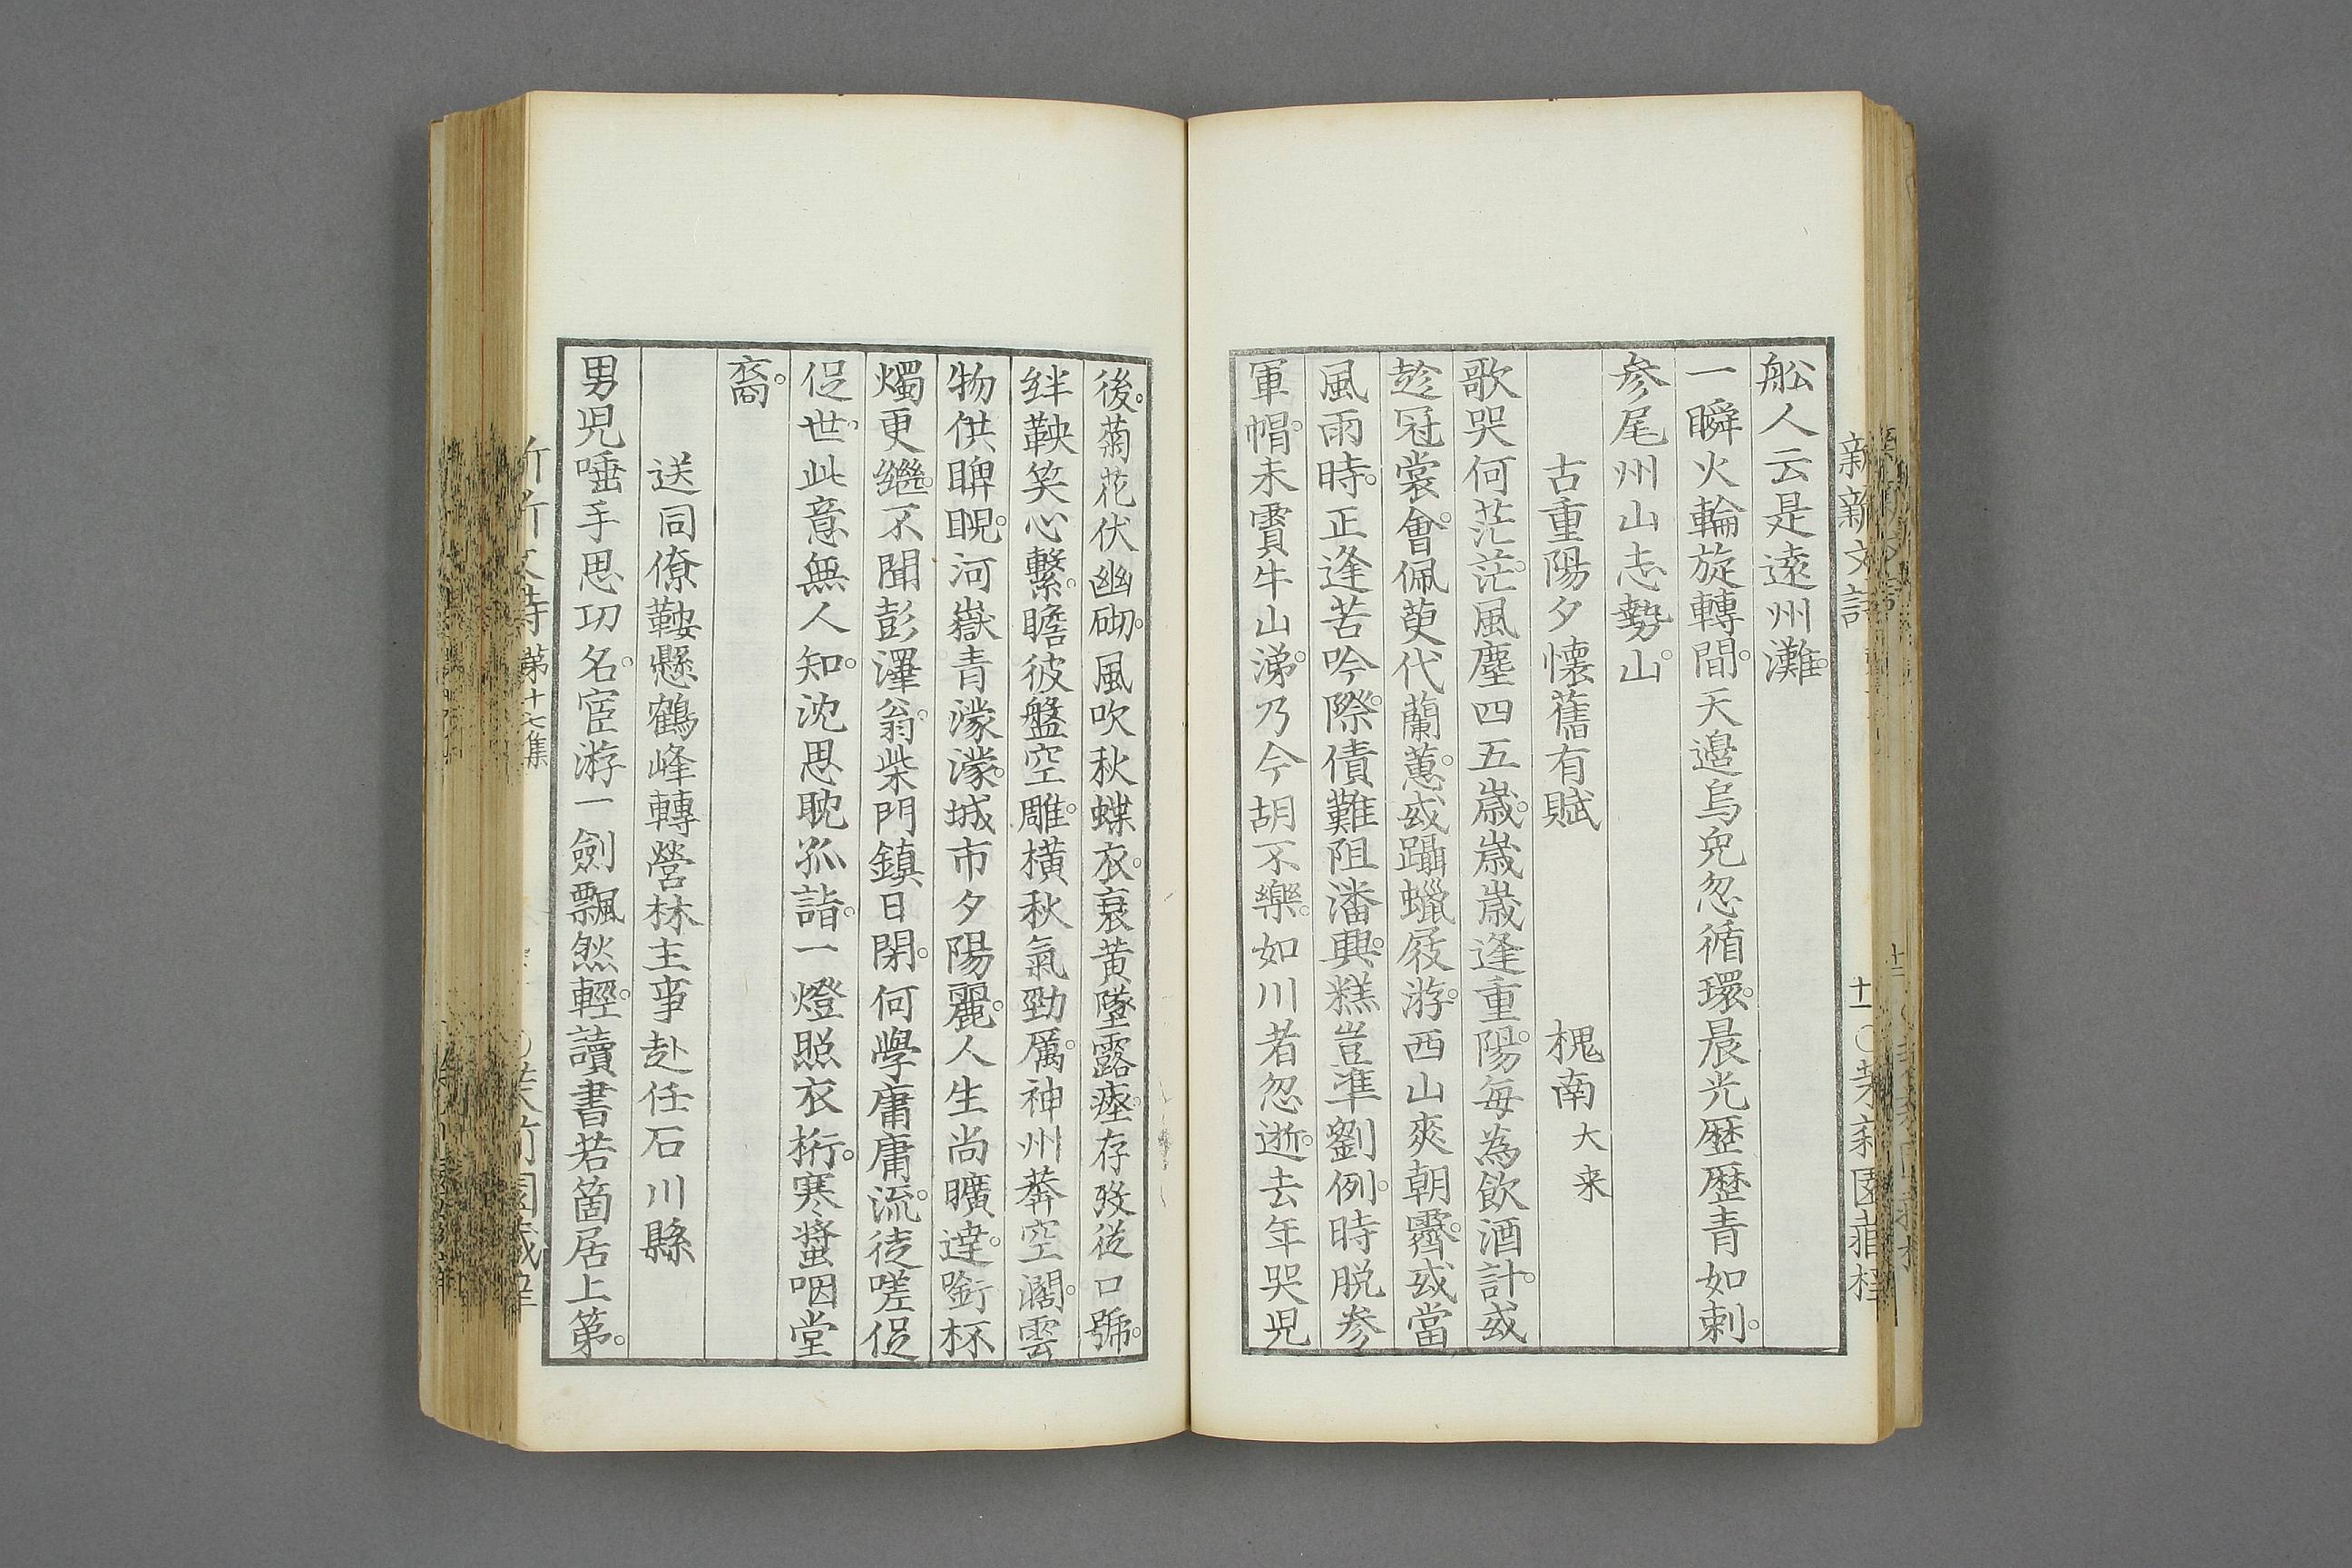 舩人云是遠州灘。
一瞬火輪旋轉間。天邉烏兔忽循環。晨光歴歴青如剌。
参尾州山志勢山。
古重陽夕懐舊有賦 槐南 大来
歌哭何茫茫。風塵四五歳。歳歳逢重陽。毎為飲酒計。或
趁冠裳會。佩萸代蘭蕙。或躡蠟屐游。西山爽朝霽。或當
風雨時。正逢苦吟際。債難阻潘興。糕豈準劉例。時脱参
軍帽。未實牛山涕。乃今胡不樂。如川者忽逝。去年哭児
後。菊花伏幽砌。風吹秋蝶衣。衰黄墜露瘞。存歿従口號。
絆鞅笑心繋。瞻彼盤空雕。横秋氣勁厲。神州莽空濶。雲
物供睥睨。河嶽青濛濛。城市夕陽麗。人生尚曠達。銜杯
燭更繼。不聞彭澤翁。柴門鎮日閉。何學庸庸流。徒嗟促
促世。此意無人知。沈思耽孤詣。一燈照衣桁。寒螿咽堂
裔。
送同僚鞍懸鶴峰轉營林主事赴任石川縣
男児唾手思功名。宦游一劍飄然輕。讀書若箇居上第。
新新文詩
十一
第十七集